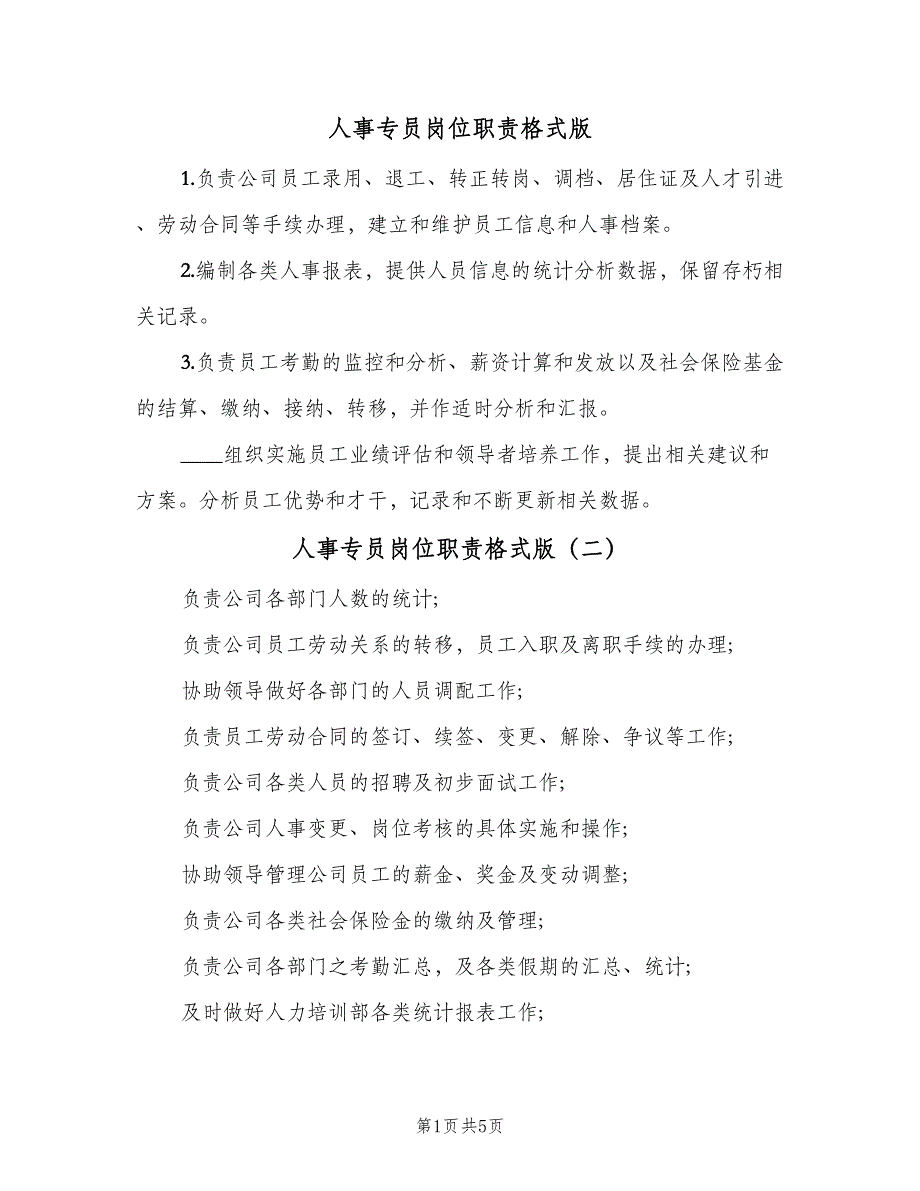 人事专员岗位职责格式版
1.负责公司员工录用、退工、转正转岗、调档、居住证及人才引进
、劳动合同等手续办理，建立和维护员工信息和人事档案。
2.编制各类人事报表，提供人员信息的统计分析数据，保留存朽相
关记录。
3.负责员工考勤的监控和分析、薪资计算和发放以及社会保险基金
的结算、缴纳、接纳、转移，并作适时分析和汇报。
____组织实施员工业绩评估和领导者培养工作，提出相关建议和
方案。分析员工优势和才干，记录和不断更新相关数据。
人事专员岗位职责格式版（二）
负责公司各部门人数的统计;
负责公司员工劳动关系的转移，员工入职及离职手续的办理;
协助领导做好各部门的人员调配工作;
负责员工劳动合同的签订、续签、变更、解除、争议等工作;
负责公司各类人员的招聘及初步面试工作;
负责公司人事变更、岗位考核的具体实施和操作;
协助领导管理公司员工的薪金、奖金及变动调整;
负责公司各类社会保险金的缴纳及管理;
负责公司各部门之考勤汇总，及各类假期的汇总、统计;
及时做好人力培训部各类统计报表工作;
第1页共5页